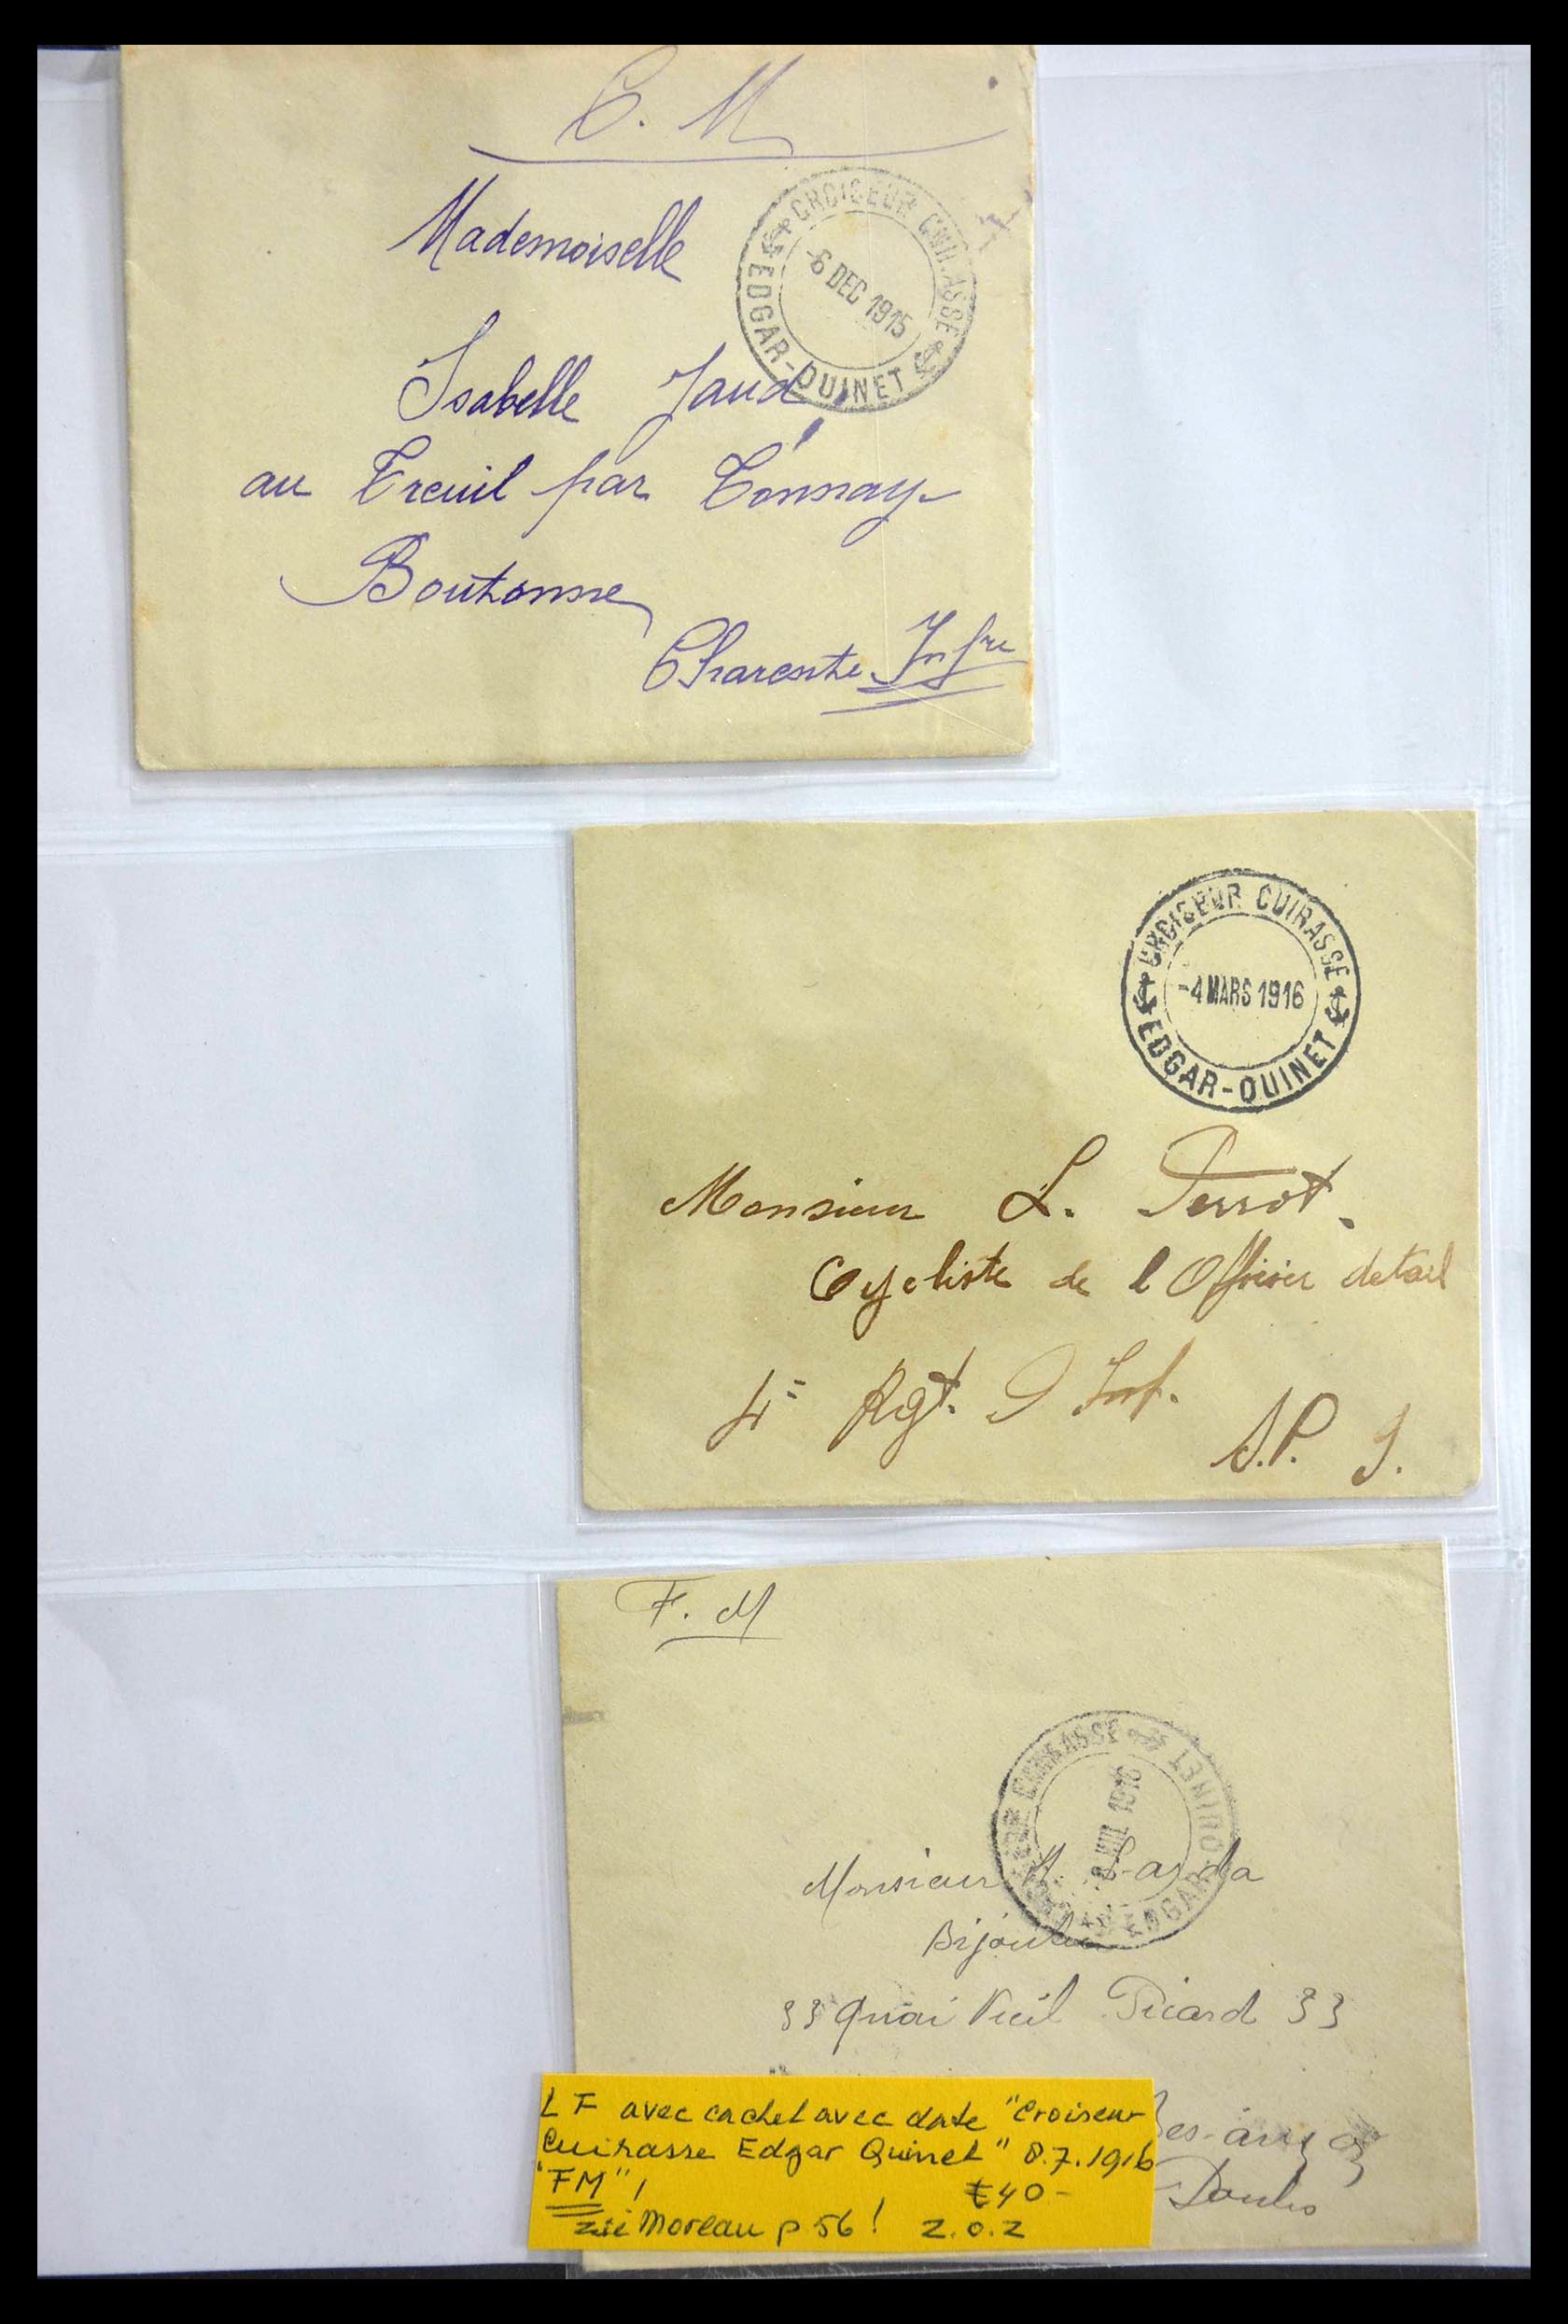 C. M
Mademoiselle
Isabelle Jaud
au Treuil par Tonnay-
Boutonne
Charente Infre
CROISEUR CUIRASSE
-6 DEC 1915
EDGAR-QUINET
CROISEUR CUIRASSE
-4 MARS 1916
EDGAR-QUINET
Monsieur L. Perrot.
Cycliste de l Officier detail
4e Rgt. D Inf.
S.P. 9.
F. M
CUIRASSE
1916
EDGAR-QUINET
Monsieur
33 Quai Veil Picard 33
Doubs
LF avec cachet avec date "Croiseur
Cuirasse Edgar Quinet" 8.7.1916
"FM"! €40-
zie Moreau p 56! Z.O.Z